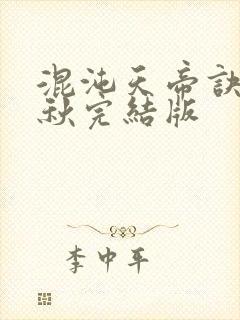 混沌天帝訣
秋完結版
李中平